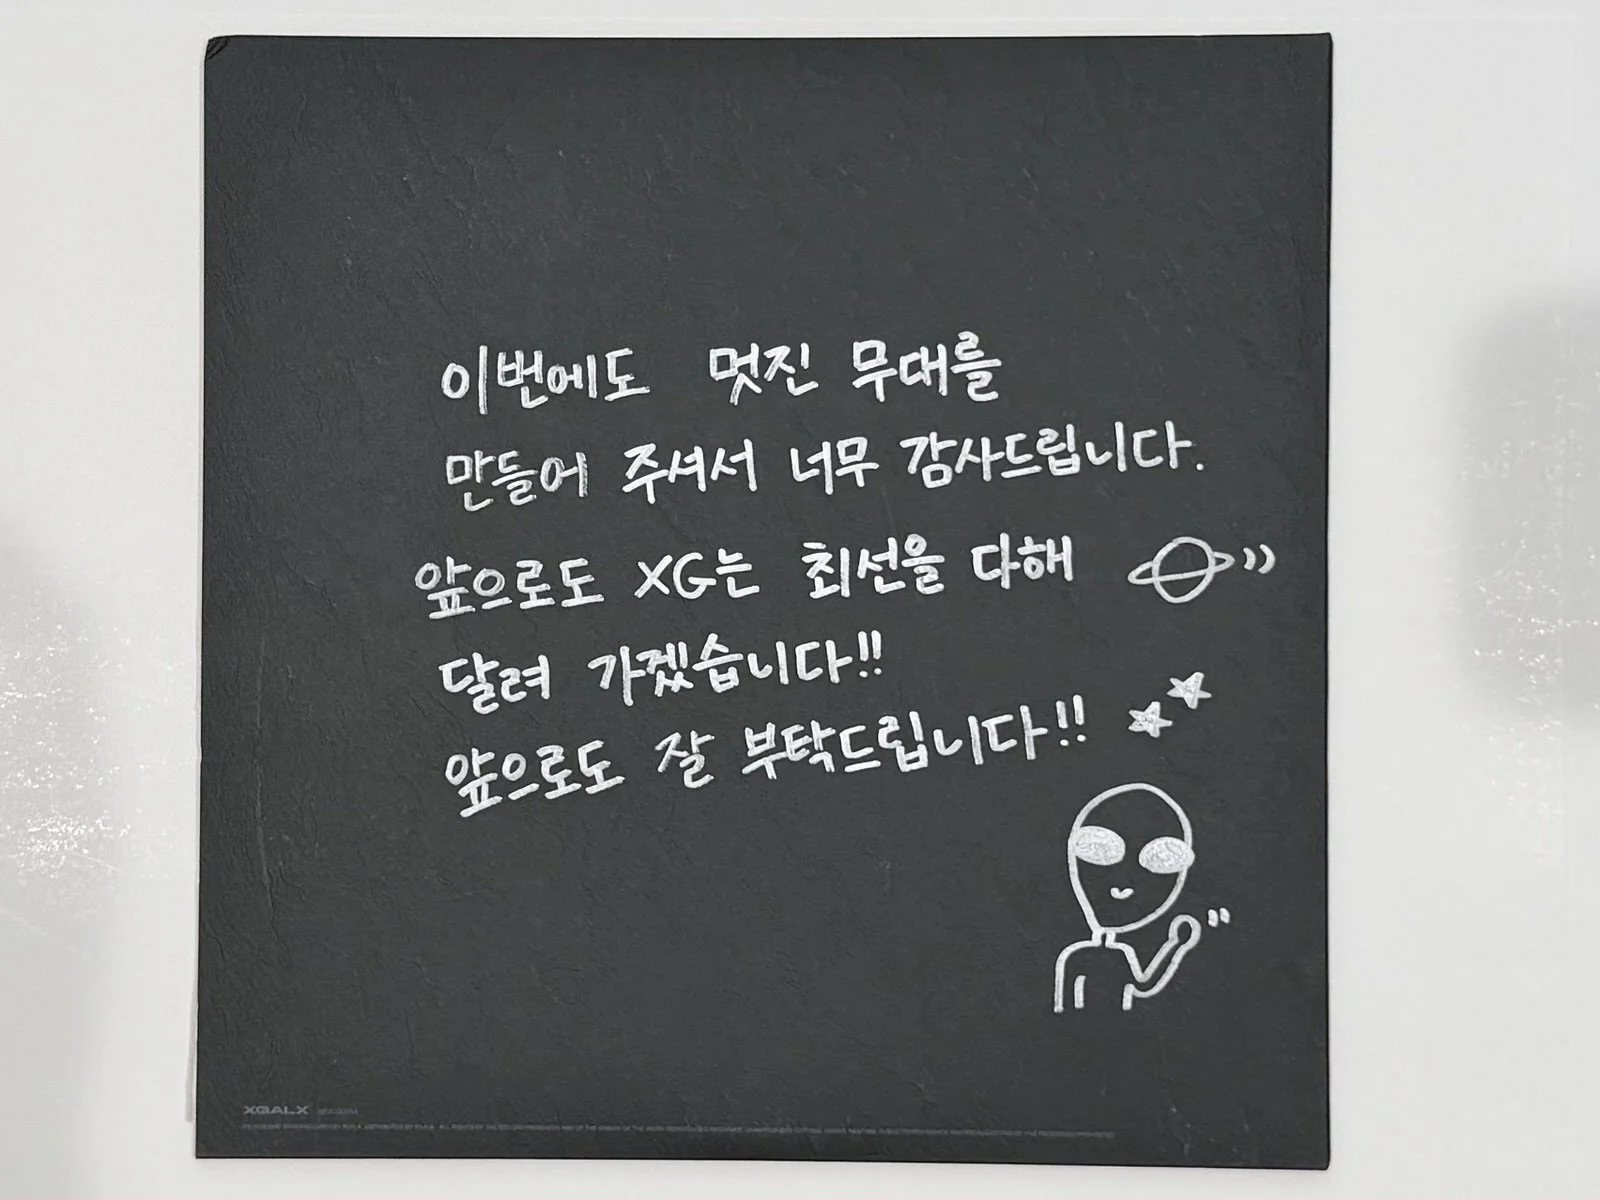 이번에도 멋진 무대를
만들어 주셔서 너무 감사드립니다.
앞으로도 XG는 최선을 다해
달려 가겠습니다!!
앞으로도 잘 부탁드립니다!!
XGALX